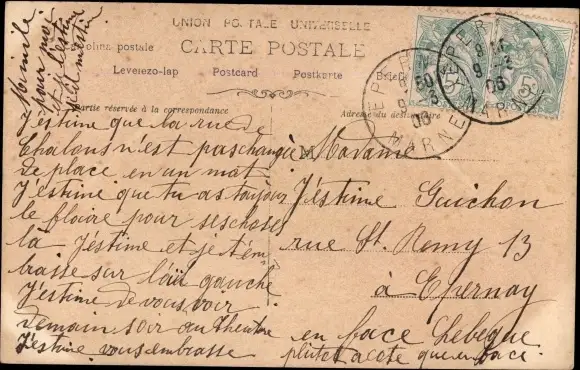 UNION POSTALE UNIVERSELLE
CARTE POSTALE
postale
Levelezo-lap Postcard Postkarte
Partie réservée à la correspondance
Adresse du destinataire
EPERNAY
MARNE
06
5
J'estime que la rue de
Chalons n'est pas changée
de place en un mot
J'estime que tu as toujours
le flaire pour ses choses
la J'estime et je t'em
brasse sur l'œil gauche
J'estime de vous voir
demain soir au théatre
J'estime vous embrasse
Madame
J'estime Guichon
rue St. Remy 13
à Epernay
en face Lebegue
plutot acote que en face.
pour moi